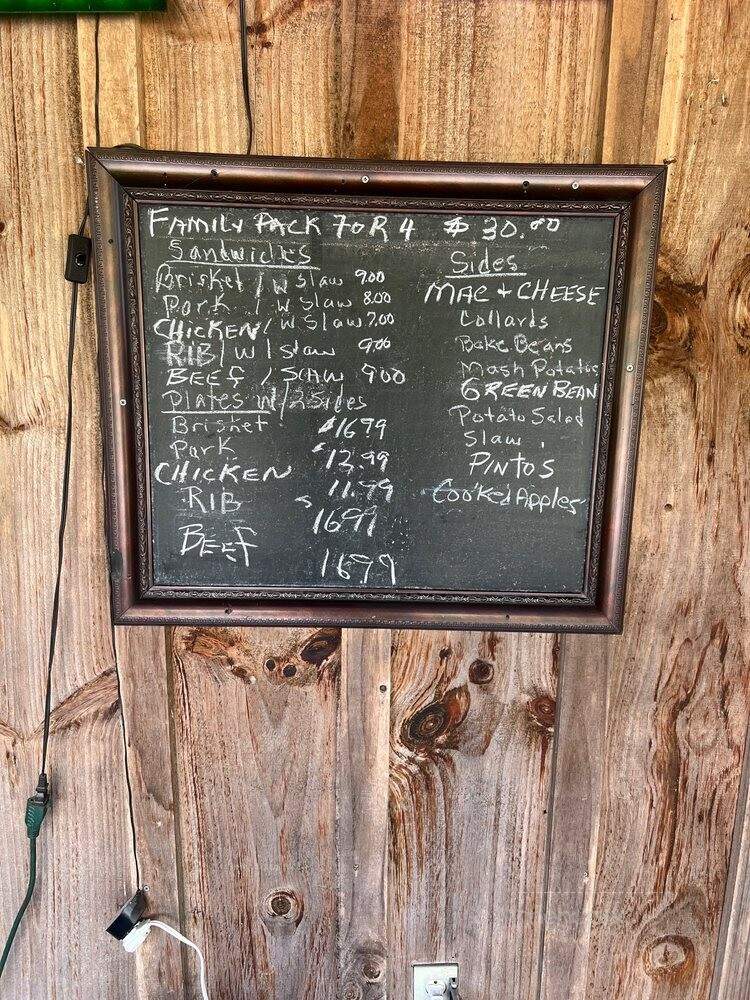 FAMILY PACK FOR 4 $ 30.00
Sandwiches
Brisket / W Slaw 9.00
Pork / W Slaw 8.00
CHICKEN / W Slaw 7.00
RIB / W / Slaw 9.00
BEEF / SLAW 900
Plates W/2 Sides
Brisket $1699
Pork $12.99
CHICKEN 11.99
RIB $1699
BEEF 1699
Sides
MAC + CHEESE
Collards
Bake Beans
Mash Potatoe
GREEN BEAN
Potato Salad
Slaw
PINTOS
Cooked Apples